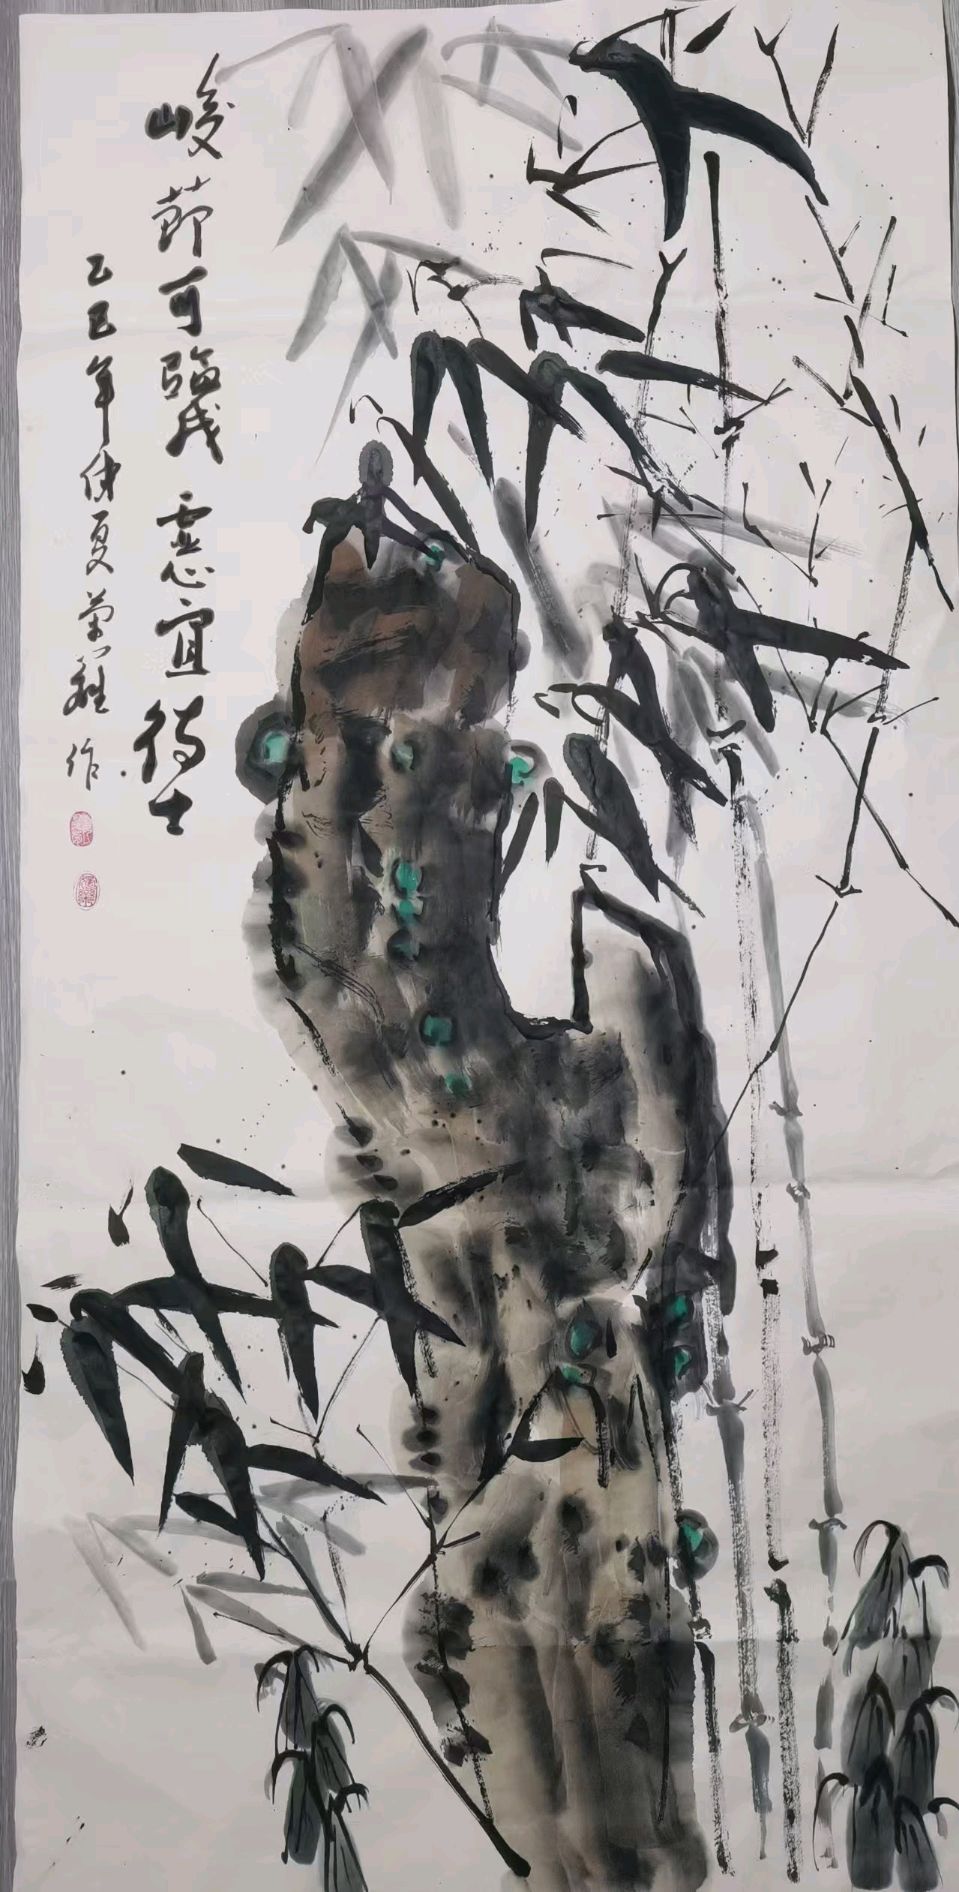 峻節可臨戎 虛心宜待士
乙巳年仲夏 作